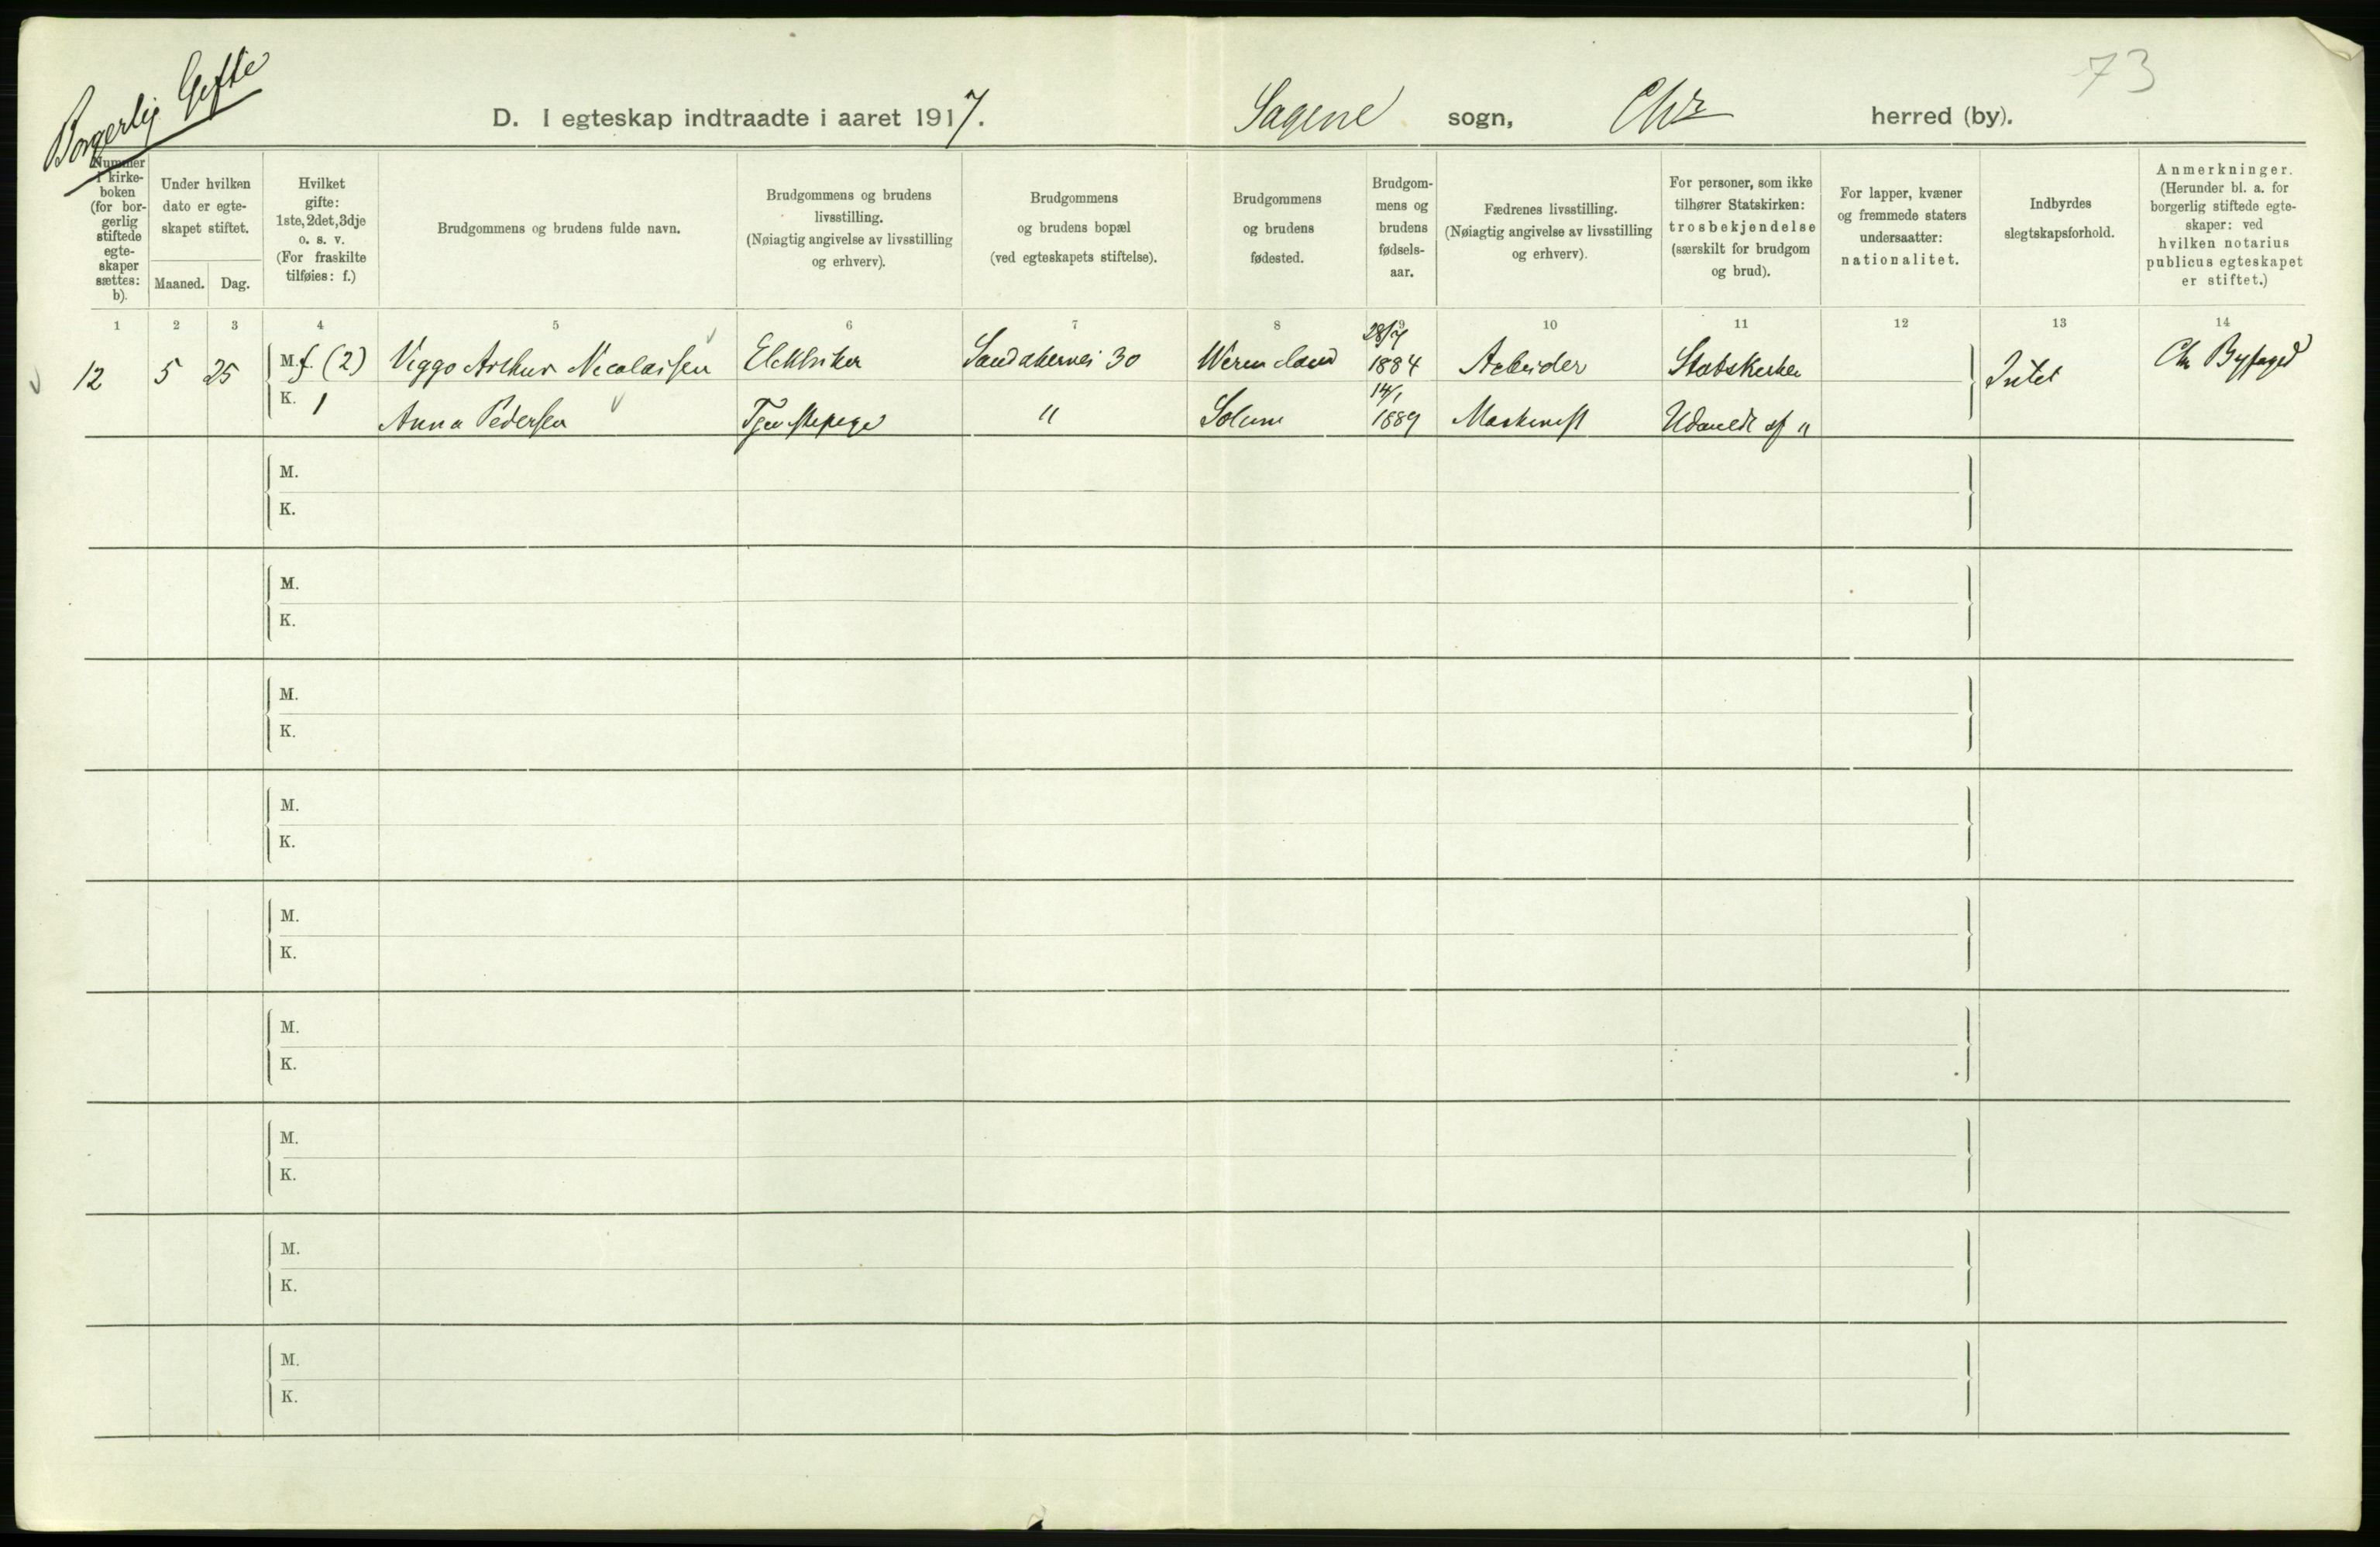 Borgerlig Gifte
73
D. I egteskap indtraadte i aaret 1917. Sagene sogn, Chr herred (by).
Nummer i kirke-boken (for bor-gerlig stiftede egte-skaper sættes: b).
Under hvilken dato er egte-skapet stiftet.
Maaned. Dag.
Hvilket gifte: 1ste, 2det, 3dje o. s. v. (For fraskilte tilføies: f.)
Brudgommens og brudens fulde navn.
Brudgommens og brudens livsstilling. (Nøiagtig angivelse av livsstilling og erhverv).
Brudgommens og brudens bopæl (ved egteskapets stiftelse).
Brudgommens og brudens fødested.
Brudgom-mens og brudens fødsels-aar.
Fædrenes livsstilling. (Nøiagtig angivelse av livsstilling og erhverv).
For personer, som ikke tilhører Statskirken: trosbekjendelse (særskilt for brudgom og brud).
For lapper, kvæner og fremmede staters undersaatter: nationalitet.
Indbyrdes slegtskapsforhold.
Anmerkninger. (Herunder bl. a. for borgerlig stiftede egte-skaper: ved hvilken notarius publicus egteskapet er stiftet.)
1 2 3 4 5 6 7 8 9 10 11 12 13 14
12 5 25 M. f. (2) Viggo Arthur Nicolaisen Elektriker Sandakervei 30 Wermeland 1884 Arbeider Statskirken Intet Chr Byfoged
K. 1 Anna Pedersen Tjenestepige " Solum 14/1 1889 Maskinist Udmeldt af "
M.
K.
M.
K.
M.
K.
M.
K.
M.
K.
M.
K.
M.
K.
M.
K.
M.
K.